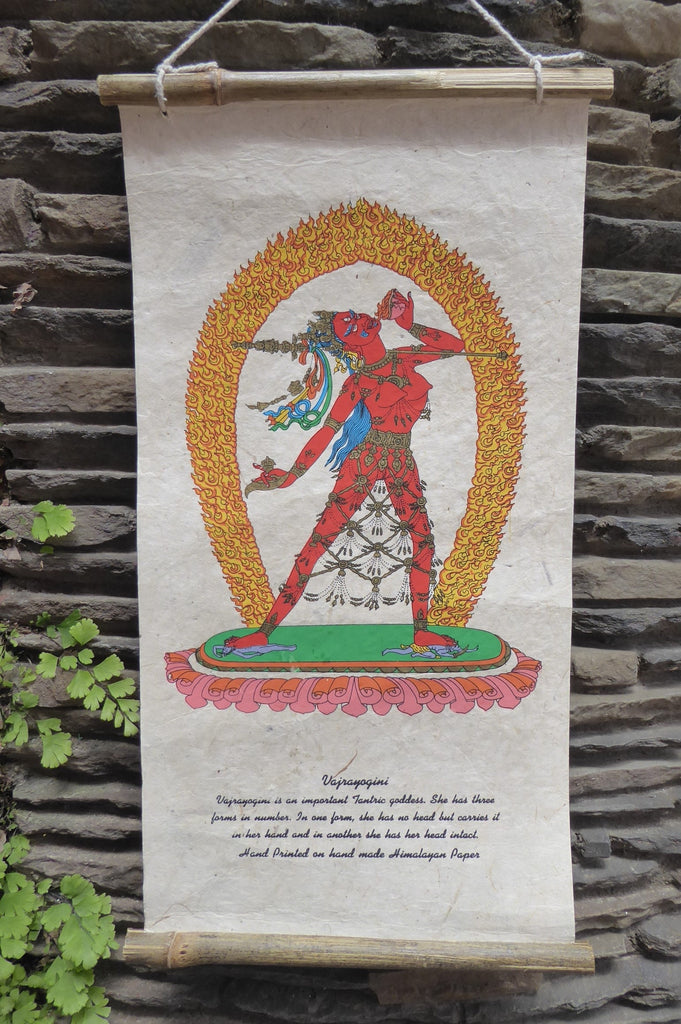 Vajrayogini
Vajrayogini is an important Tantric goddess. She has three
forms in number. In one form, she has no head but carries it
in her hand and in another she has her head intact.
Hand Printed on hand made Himalayan Paper